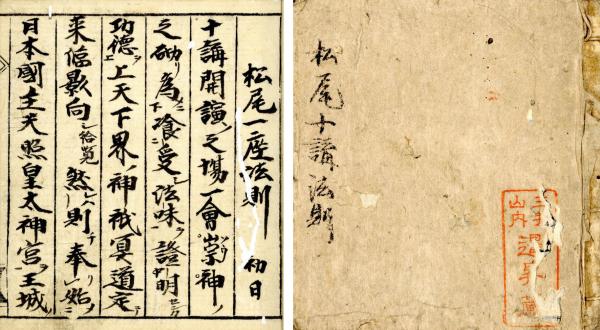 松尾十講法則
山内
松尾一座法則 初日
十講開演之場一會崇神ノ
之砌リ為飡受法味證明
功德ヲ上天下界ノ神祇冥道定テ
来臨影向シ給覧然レハ則チ奉リ始メ
日本國主天照皇太神宮王城ノ